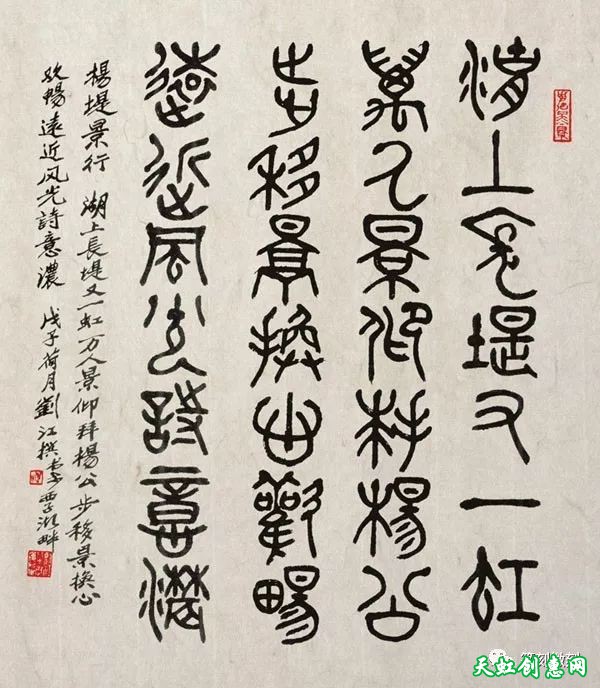 湖上長堤又一虹
萬人景仰拜楊公
步移景換心歡暢
遠近風光詩意濃
楊堤景行 湖上長堤又一虹万人景仰拜楊公步移景換心
欢暢遠近风光詩意濃 戊子荷月劉江撰书于西子湖畔
天虹创意网